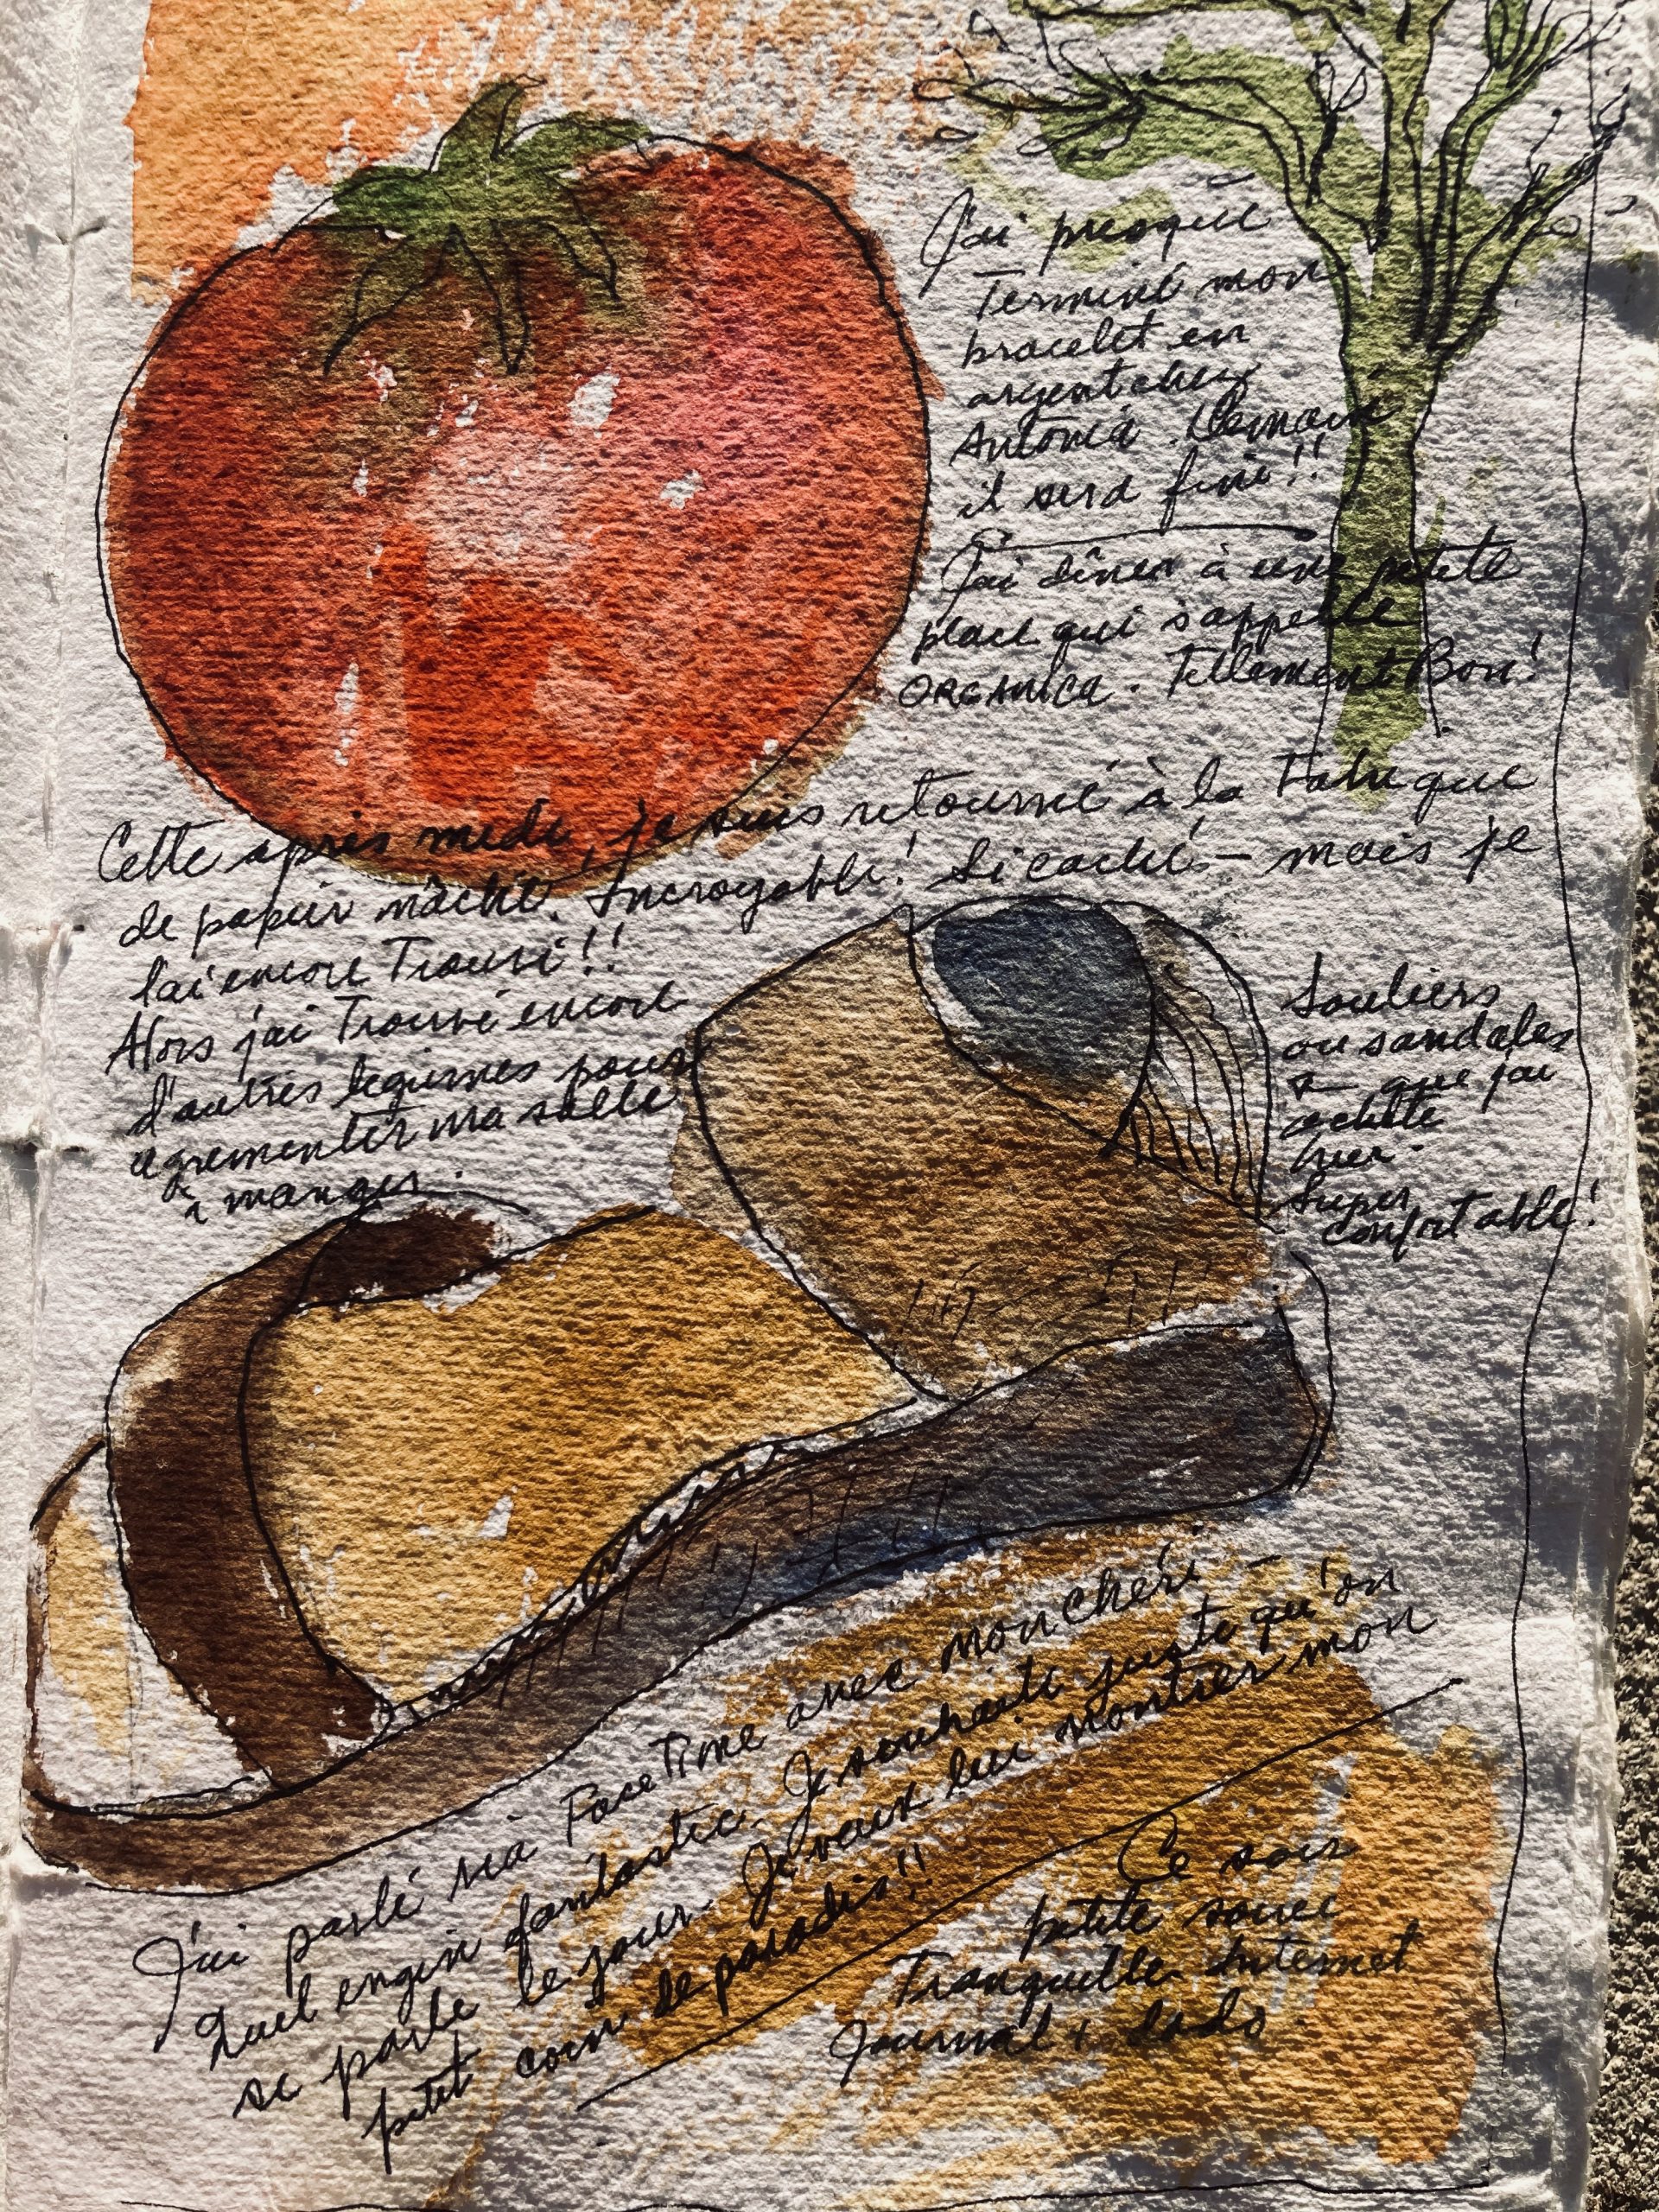 J'ai presque
terminé mon
bracelet en
argent chez
Antonia. Demain
il sera fini!!
J'ai dîner à une petite
place qui s'appelle
ORGANICA. Tellement Bon!
Cette après midi, je suis retourné à la Fabrique
de papier mâché. Incroyable! Si caché - mais je
l'ai encore Trouvé!!
Alors j'ai Trouvé encore
d'autres légumes pour
agrémenter ma salle
à manger.
Souliers
ou sandales
que j'ai
acheté
hier.
Super
confortable!
J'ai parlé via FaceTime avec mon chéri -
Quel engin fantastic. Je souhaite juste qu'on
se parle le jour. Je veux lui montrer mon
petit coin de paradis!!
Ce soir
petite soirée
Tranquille. Internet
Journal & dodo.